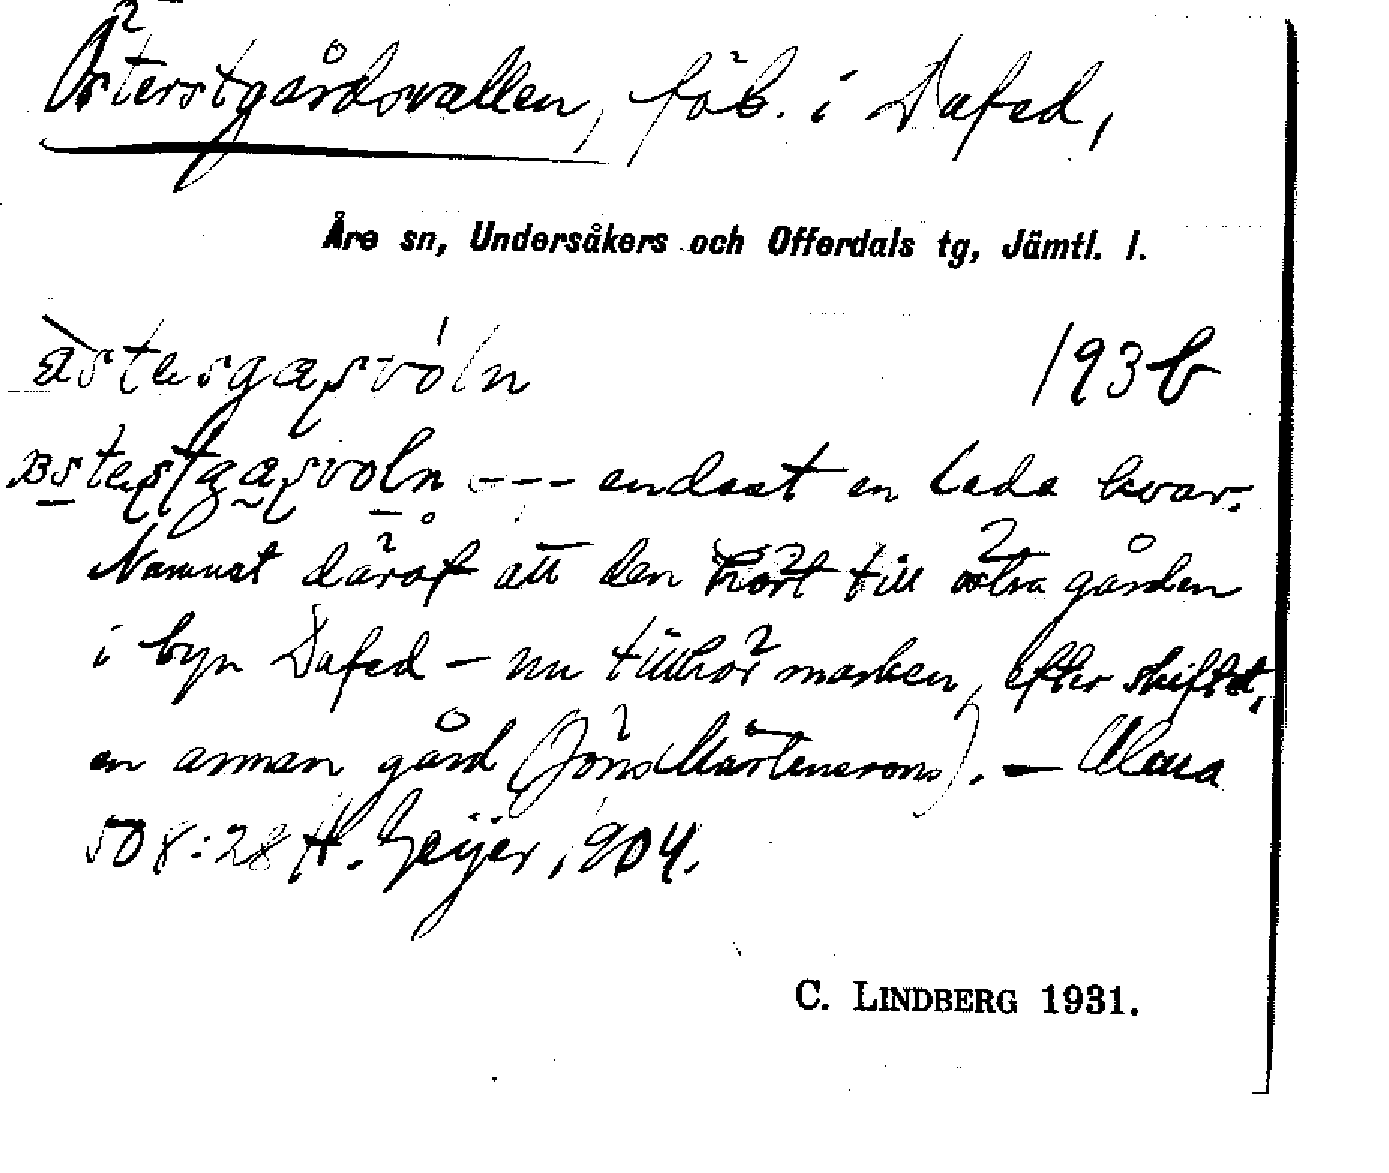 Österstgårdsvallen, fäb. i Dufed,
Åre sn, Undersåkers och Offerdals tg, Jämtl. l.
193 b
--- endast en lada kvar.
Namnet däraf att den hört till östra gården
i byn Dufed – nu tillhör marken, efter skiftet,
en annan gård (Jöns Mårtensons). –
508:28 H. Geijer, 1904.
C. LINDBERG 1931.